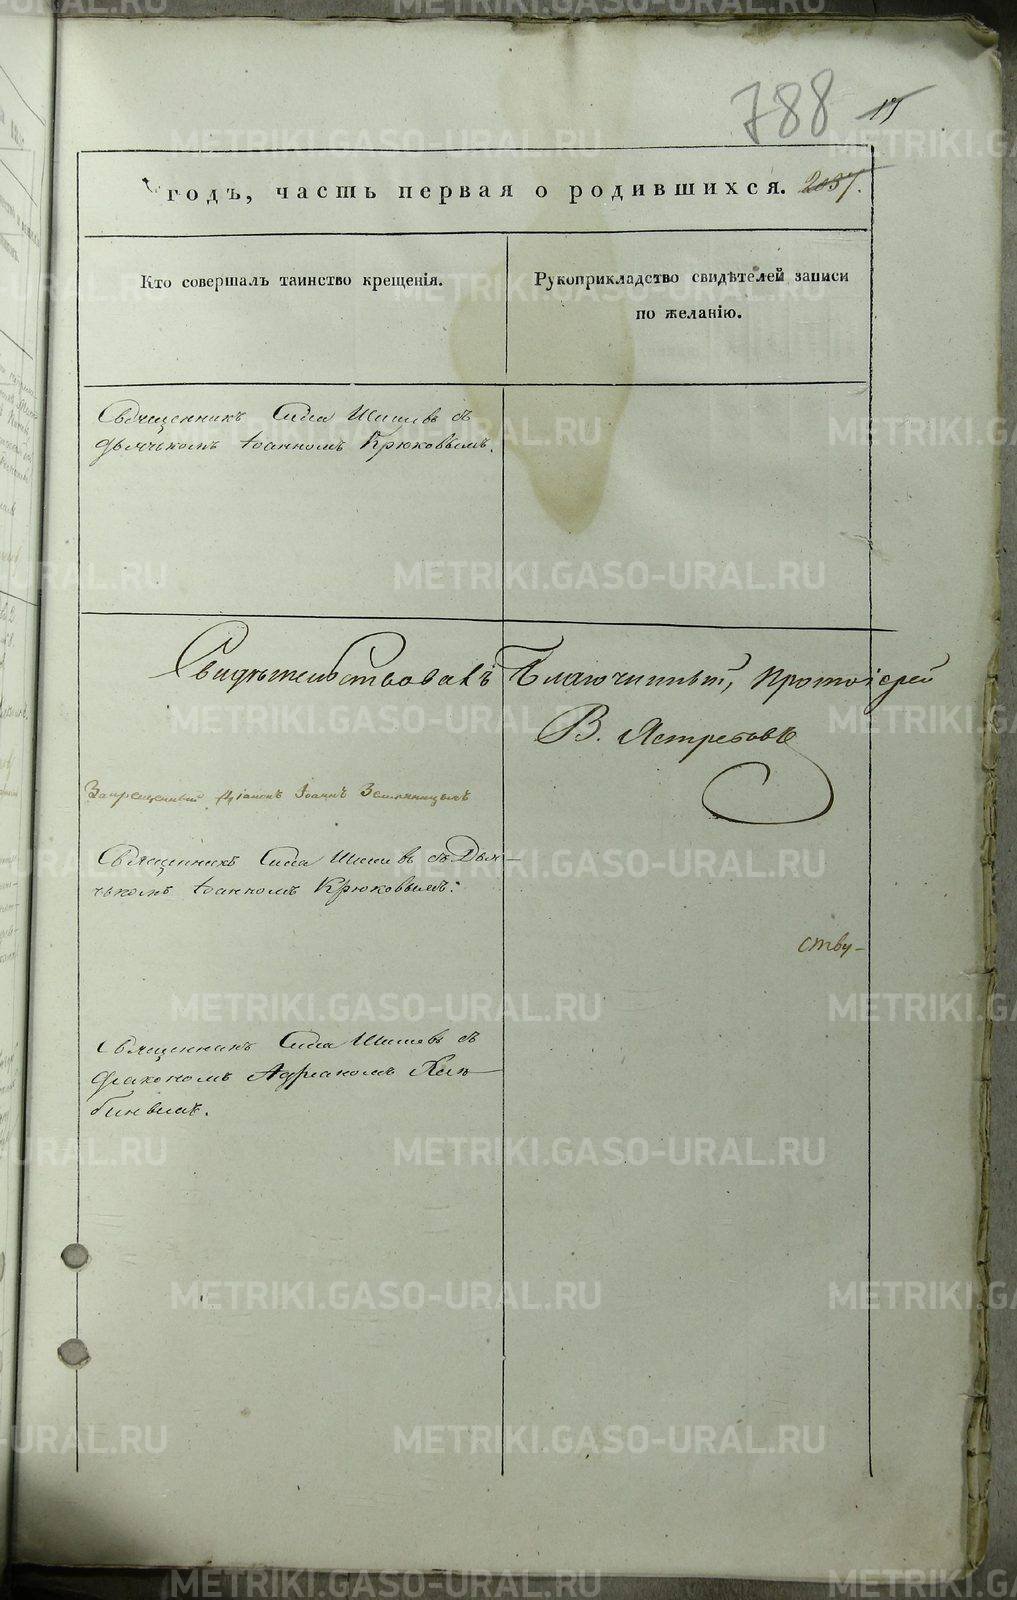 788 15
годъ, часть первая о родившихся. 2037.
Кто совершалъ таинство крещенія.
Рукоприкладство свидѣтелей записи
по желанію.
Священникъ Сила Шишевъ съ
дьячькомъ Іоанномъ Крюковымъ.
Свидѣтельствовалъ Благочинный, протоіерей
В. Ястребовъ
Запрещенный Діаконъ Іоаннъ
Священникъ Сила Шишевъ съ Дья-
чькомъ Іоанномъ Крюковымъ.
ству-
Священникъ Сила Шишевъ съ
діакономъ Адріаномъ Хлѣ-
бинымъ.
METRIKI.GASO-URAL.RU